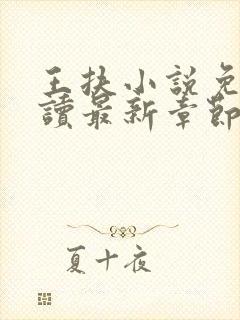 王扶小說免
讀最新章節
夏十夜